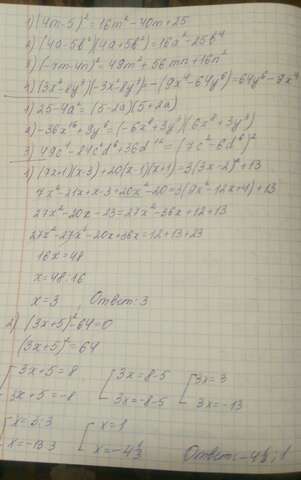 1) (4m-5)² = 16m² - 40m + 25
2) (4a-5b²)(4a+5b²) = 16a² - 25b⁴
3) (-7m-4n)² = 49m² + 56mn + 16n²
4) (3x²-8y³)(-3x²-8y³) = -(9x⁴-64y⁶) = 64y⁶ - 9x⁴
1) 25-4a² = (5-2a)(5+2a)
2) -36x¹⁶ + 9y⁶ = (-6x⁸+3y³)(6x⁸+3y³)
3) 49c⁴ - 84c²d⁶ + 36d¹² = (7c² - 6d⁶)²
1) (7x+1)(x-3) + 20(x-1)(x+1) = 3(3x-2)² + 13
7x² - 21x + x - 3 + 20x² - 20 = 3(9x² - 12x + 4) + 13
27x² - 20x - 23 = 27x² - 36x + 12 + 13
27x² - 27x² - 20x + 36x = 12 + 13 + 23
16x = 48
x = 48:16
x = 3 Ответ: 3
2) (3x+5)² - 64 = 0
(3x+5)² = 64
3x+5 = 8 3x = 8-5 3x = 3
3x+5 = -8 3x = -8-5 3x = -13
x = 3:3 x = 1
x = -13:3 x = -4⅓ Ответ: -4⅓; 1